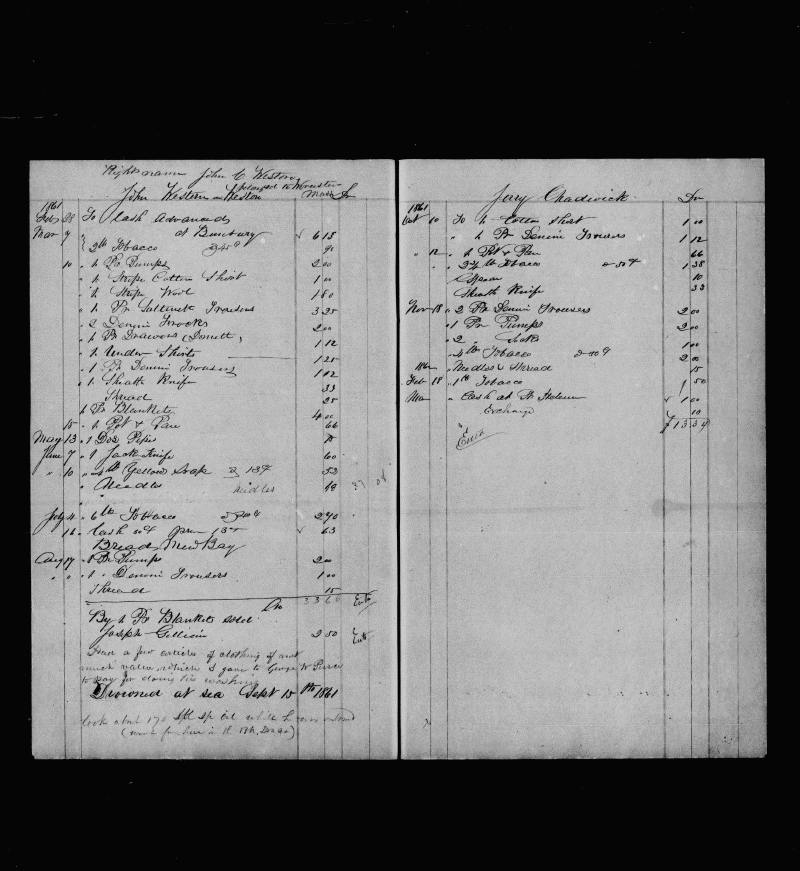 Right name John C Weston
belonged to Worcester
John Western or Weston Mass Dr
1861
Feb 28 To Cash Advanced
Mar 9 at Bunbury 6 15
" 2 lb Tobacco 45¢ 90
10 " 1 Pr Pumps 2 00
" 1 Stripe Cotton Shirt 1 00
" 1 Stripe Wool 1 50
" 1 Pr Sattinett Trousers 3 25
" 2 Denim Frocks 2 00
" 1 Pr Drawers (Domett) 1 12
" 1 Under Shirts 1 25
" 1 Pr Denim Trousers 1 12
" 1 Sheath Knife 33
" Thread 25
1 Pr Blankets 4 00
15 " 1 Pot & Pan 66
May 13 " 1 Doz Pipes
June 7 " 1 Jack Knife 60
" 10 " 4 lb Yellow Soap 13¢ 53
" Needles needles 18
July 4 " 6 lb Tobacco 2 70
16 " Cash 63
Bread New Bay
Aug 17 " 1 Pr Pumps 2 00
" " " 1 " Denim Trousers 1 00
Thread 15
33 60 Entd
By 1 Pr Blankets sold
Joseph 2 50 Entd
Had a few articles of clothing of not
much value which I gave to George W Pierce
to pay for doing his washing
Drowned at sea Sept 15th 1861
took about 170 bbl sp oil while he was on board
Jerry Chadwick Dr
1861
Oct 10 To 1 Cotton Shirt 1 00
" 1 Pr Denim Trousers 1 12
" 12 " 1 Pot & Pan 66
" 2¾ lb Tobacco 50¢ 1 38
Spoon 10
Sheath Knife 33
Nov 18 " 2 Pr Denim Trousers 2 00
" 1 Pr Pumps 2 00
" 2 " Socks 1 00
" 4 lbs Tobacco 50¢ 2 00
1862 Needles & Thread 15
Feb 18 " 1 lb Tobacco 50
Mar " Cash at St Helena 1 00
Exchange 10
$13.34